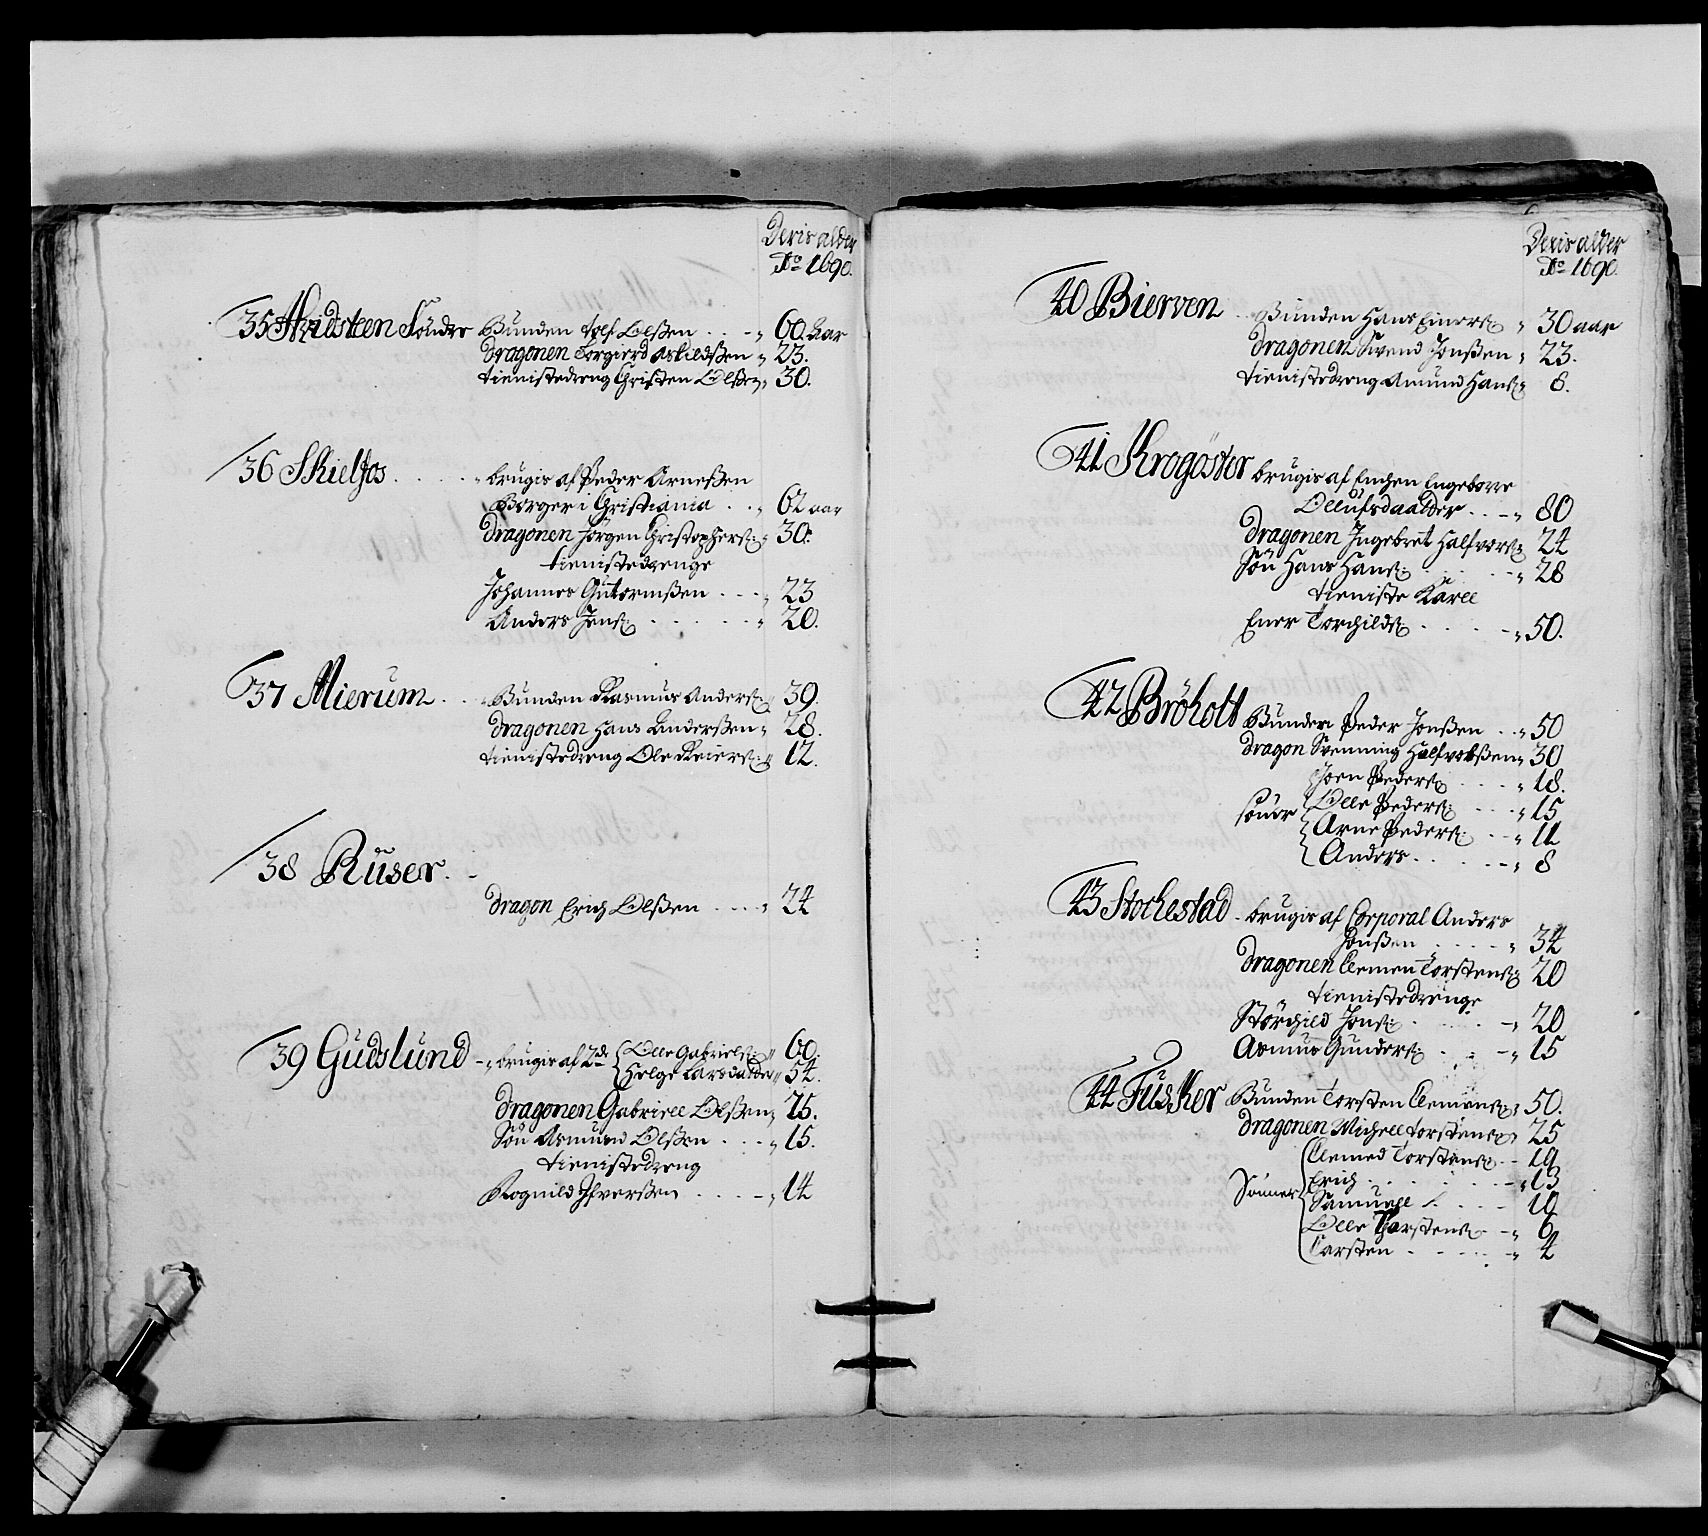 Deris alder
Ao 1690.
35 Hvidsteen Söndre Bunden Tolf Olßen . . - „ 60. Aar
Dragonen Torgierd Askildßen „ 23.
tienistedreng Christen Olßen „ 30.
36 Skielfos . . . . . „ brugis af Peder Arneßen
Borger i Christiania . . „ 62 aar
Dragonen Jörgen Christophers: „ 30.
tienistedrenge
Johannes Gutormßen . . . „ 23
Anders Jens: . . . . . „ 20.
37 Mierum . . . „ Bunden Rasmus Anders: „ 39.
Dragonen Hans Anderßen „ 28.
tienistedreng Ole Reiers: „ 12.
38 Ruser . -
Dragon Erich Olßen . . . . „ 24
39 Gudslund - „ brugis af 2de Olle Gabriels: „ 60.
Helge Larsdatter „ 54.
Dragonen Gabriell Olßen „ 25.
Sön Asmund Olßen . . . „ 15.
tienistedreng
Rognild Ifverßen . . . . - „ 14
Deris alder
Ao 1690.
40 Bierven . . Bunden Hans Einers: „ 30 aar
Dragonen Svend Jonßen „ 23.
tienistedreng Amund Hans: „ 8.
41 Krogöster brugis af Enchen Ingeborre
Ollufsdaatter . . . - „ 80
Dragonen Ingebret Halfvors: „ 24
Sön Hans Hans: . . . . - „ 28
tieniste Karll
Ener Torchilds: . . . . - „ 50.
42 Bröholt Bunden Peder Jonßen . . „ 50
Dragon Svenning Halfvorßen „ 30
Joen Peders: . . . . „ 18.
sönner Olle Peders: . . . . „ 15
Arne Peders: . . - „ 11
Anders . . . . . - „ 8
43 Stochestad - brugis af Corporal Anders
Jonßen . . . . . „ 34
Dragonen Clemen Torstens: „ 20
tienistedrenge
Storchild Jons: . . . . . - „ 20
Asmus Gunders: . . . - „ 15
44 Fusker Bunden Torsten Clemens: „ 50.
Dragonen Michell Torstens: „ 25
Clemed Torstens: - - 19
Sönner Erich . . . . . . . - „ 13
Samuell . . . . - - 10
Olle Torstens: - „ 6
Carsten . . . . . . - „ 4